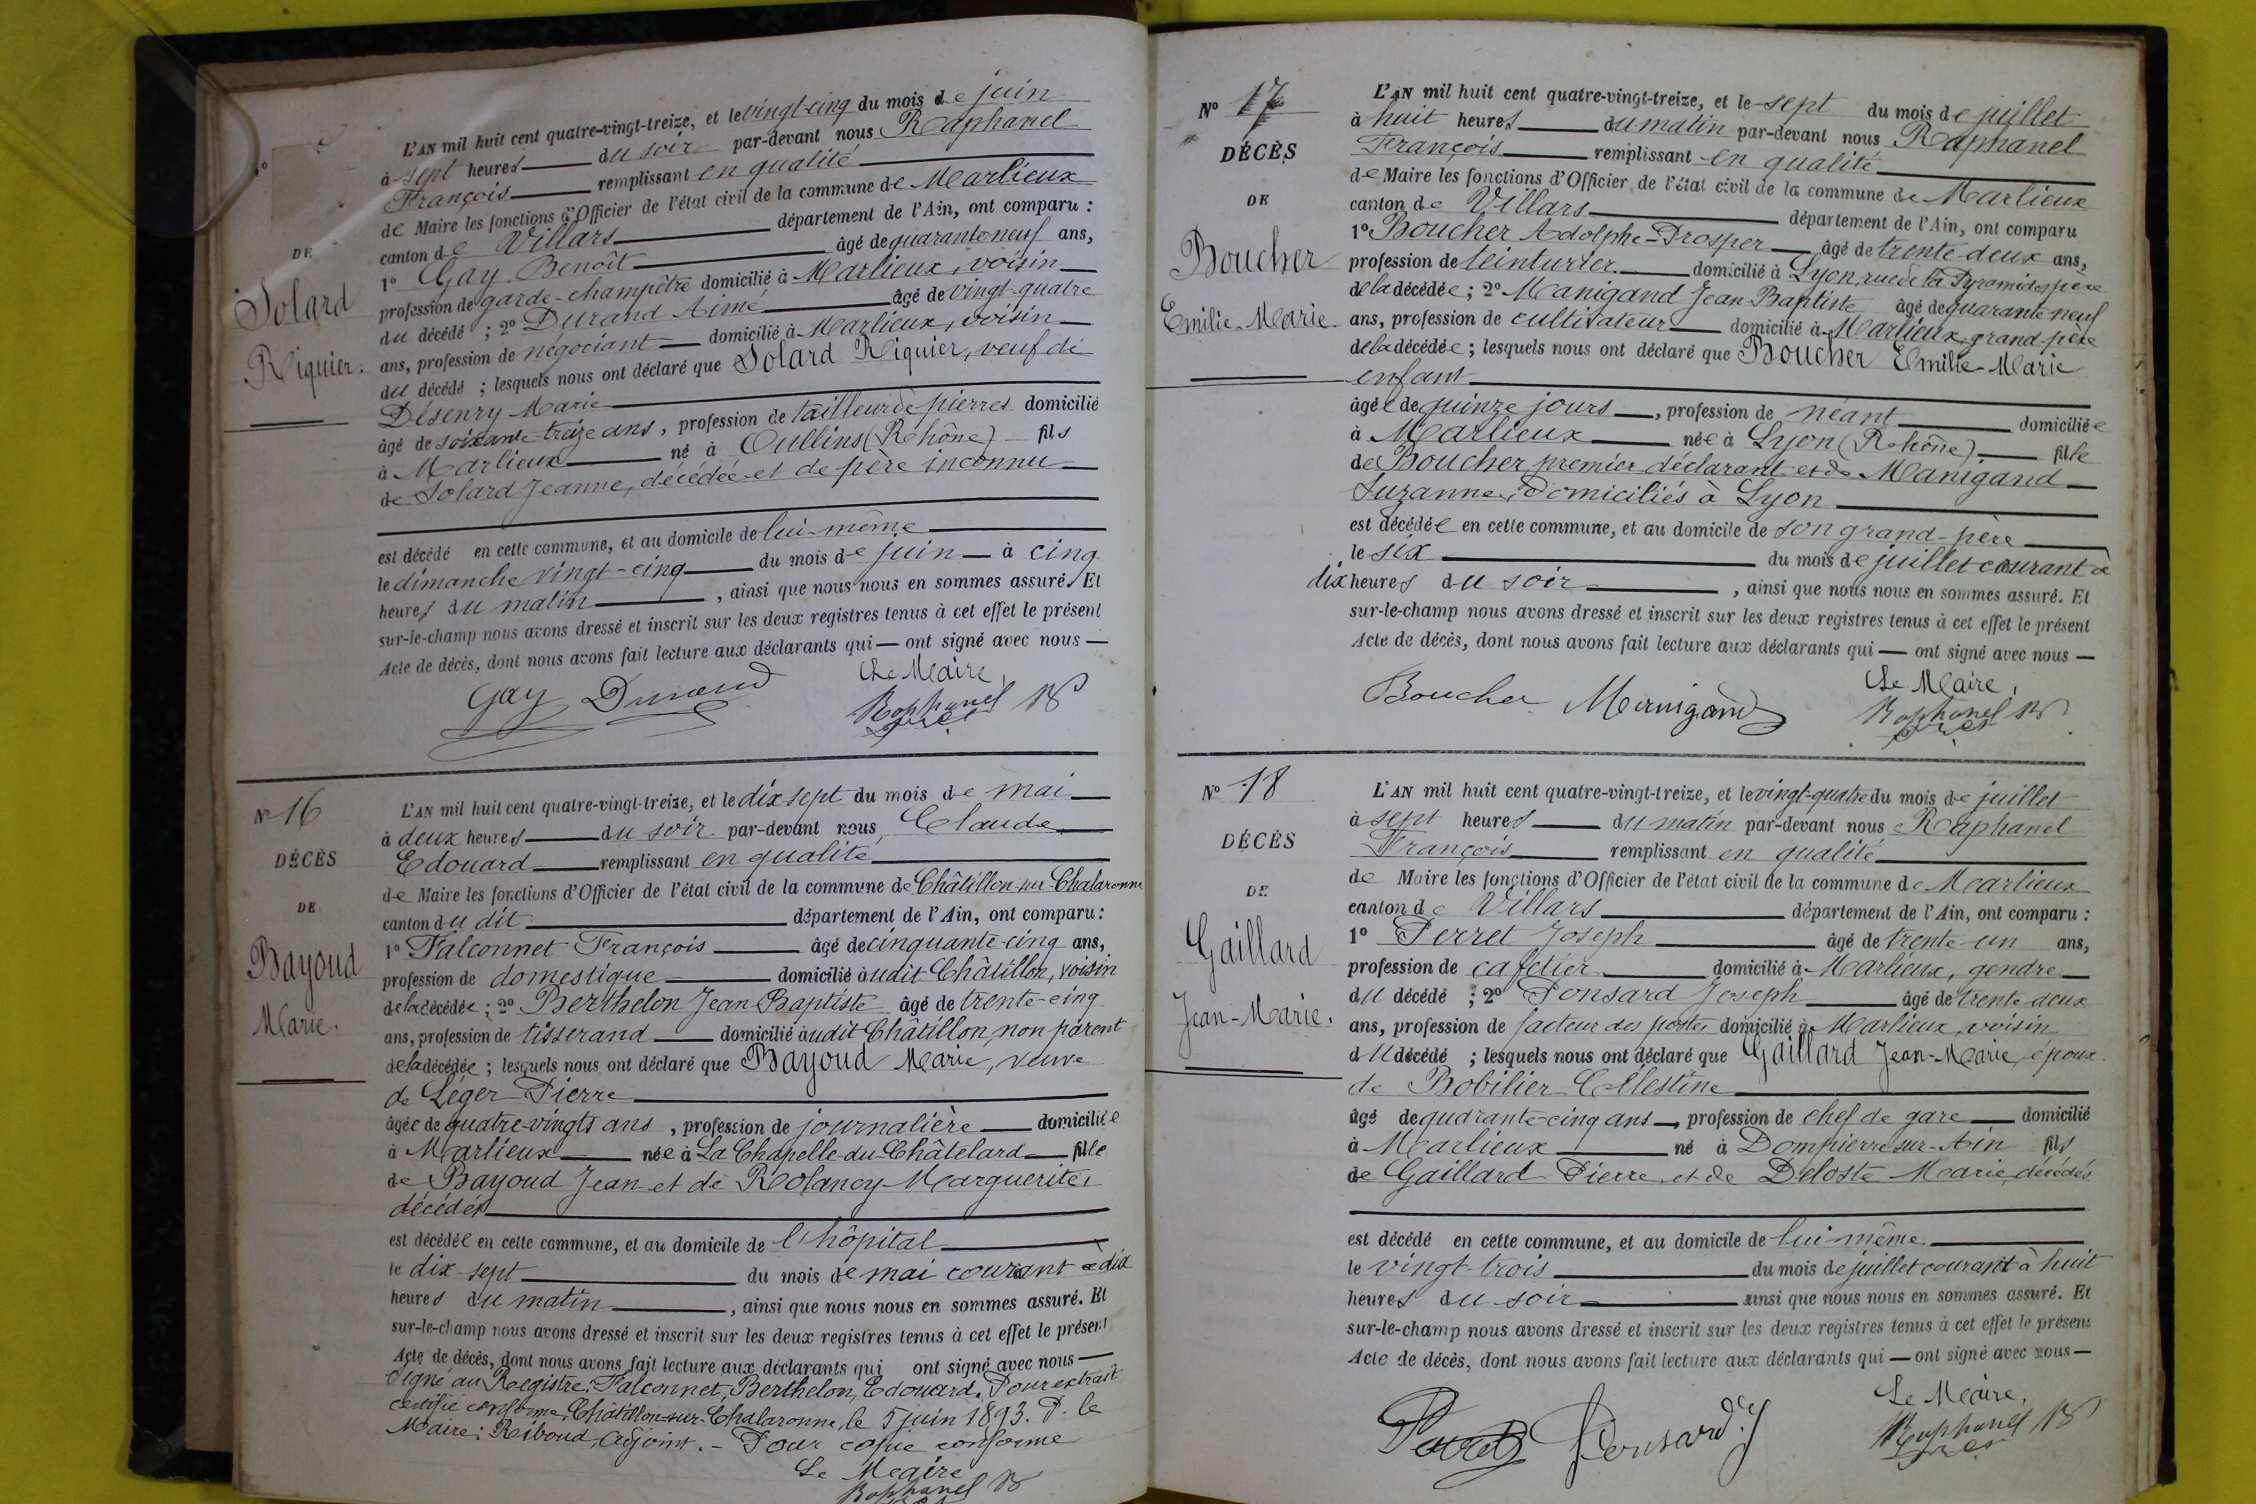 DE
Solard
Riquier.
L'AN mil huit cent quatre-vingt-treize, et le vingt-cinq du mois de juin
à sept heures du soir par-devant nous Raphanel
François remplissant en qualité
de Maire les fonctions d'Officier de l'état civil de la commune de Marlieux
canton de Villars département de l'Ain, ont comparu :
1° Gay Benoît âgé de quarante neuf ans,
profession de garde-champêtre domicilié à Marlieux, voisin
du décédé ; 2° Durand Aimé âgé de vingt-quatre
ans, profession de négociant domicilié à Marlieux, voisin
du décédé ; lesquels nous ont déclaré que Solard Riquier, veuf de
Désenry Marie
âgé de soixante treize ans, profession de tailleur de pierres domicilié
à Marlieux né à Oullins (Rhône) fils
de Solard Jeanne, décédée et de père inconnu
est décédé en cette commune, et au domicile de lui-même
le dimanche vingt-cinq du mois de juin à cinq
heures du matin, ainsi que nous nous en sommes assuré. Et
sur-le-champ nous avons dressé et inscrit sur les deux registres tenus à cet effet le présent
Acte de décès, dont nous avons fait lecture aux déclarants qui — ont signé avec nous —
Le Maire,
Gay Durand Raphanel
N° 16
DÉCÈS
DE
Bayoud
Marie.
L'AN mil huit cent quatre-vingt-treize, et le dix sept du mois de mai
à deux heures du soir par-devant nous Claude
Edouard remplissant en qualité
de Maire les fonctions d'Officier de l'état civil de la commune de Châtillon-sur-Chalaronne
canton du dit département de l'Ain, ont comparu :
1° Falconnet François âgé de cinquante-cinq ans,
profession de domestique domicilié à udit Châtillon, voisin
de la décédée ; 2° Berthelon Jean-Baptiste âgé de trente-cinq
ans, profession de tisserand domicilié à udit Châtillon, non parent
de la décédée ; lesquels nous ont déclaré que Bayoud Marie, veuve
de Léger Pierre
âgée de quatre-vingts ans, profession de journalière domiciliée
à Marlieux née à La Chapelle-du-Châtelard fille
de Bayoud Jean et de Rolancy Marguerite,
décédés
est décédée en cette commune, et au domicile de l'hôpital
le dix-sept du mois de mai courant à dix
heures du matin, ainsi que nous nous en sommes assuré. Et
sur-le-champ nous avons dressé et inscrit sur les deux registres tenus à cet effet le présent
Acte de décès, dont nous avons fait lecture aux déclarants qui ont signé avec nous —
Signé au Registre : Falconnet, Berthelon, Edouard. Pour extrait
certifié conforme, Châtillon-sur-Chalaronne, le 5 juin 1893. P. le
Maire : Riboud, Adjoint. – Pour copie conforme
Le Maire
Raphanel
N° 17
DÉCÈS
DE
Boucher
Emilie-Marie.
L'AN mil huit cent quatre-vingt-treize, et le sept du mois de juillet
à huit heures du matin par-devant nous Raphanel
François remplissant en qualité
de Maire les fonctions d'Officier de l'état civil de la commune de Marlieux
canton de Villars département de l'Ain, ont comparu
1° Boucher Adolphe-Prosper âgé de trente-deux ans,
profession de teinturier domicilié à Lyon, rue de la Pyramides père
de la décédée ; 2° Manigand Jean Baptiste âgé de quarante neuf
ans, profession de cultivateur domicilié à Marlieux, grand-père
de la décédée ; lesquels nous ont déclaré que Boucher Emilie-Marie
enfant
âgée de quinze jours, profession de néant domiciliée
à Marlieux née à Lyon (Rhône) fille
de Boucher, premier déclarant et de Manigand
Suzanne, domiciliés à Lyon
est décédée en cette commune, et au domicile de son grand-père
le six du mois de juillet courant à
dix heures du soir, ainsi que nous nous en sommes assuré. Et
sur-le-champ nous avons dressé et inscrit sur les deux registres tenus à cet effet le présent
Acte de décès, dont nous avons fait lecture aux déclarants qui — ont signé avec nous —
Le Maire,
Boucher Manigand Raphanel
N° 18
DÉCÈS
DE
Gaillard
Jean-Marie.
L'AN mil huit cent quatre-vingt-treize, et le vingt-quatre du mois de juillet
à sept heures du matin par-devant nous Raphanel
François remplissant en qualité
de Maire les fonctions d'Officier de l'état civil de la commune de Marlieux
canton de Villars département de l'Ain, ont comparu :
1° Perret Joseph âgé de trente-un ans,
profession de cafetier domicilié à Marlieux, gendre
du décédé ; 2° Ponsard Joseph âgé de trente deux
ans, profession de facteur des postes domicilié à Marlieux, voisin
du décédé ; lesquels nous ont déclaré que Gaillard Jean-Marie, époux
de Bobilier Célestine
âgé de quarante-cinq ans, profession de chef de gare domicilié
à Marlieux né à Dompierre-sur-Ain fils
de Gaillard Pierre et de Deloste Marie, décédés
est décédé en cette commune, et au domicile de lui-même
le vingt-trois du mois de juillet courant à huit
heures du soir ainsi que nous nous en sommes assuré. Et
sur-le-champ nous avons dressé et inscrit sur les deux registres tenus à cet effet le présent
Acte de décès, dont nous avons fait lecture aux déclarants qui — ont signé avec nous —
Le Maire,
Perret Ponsard J Raphanel